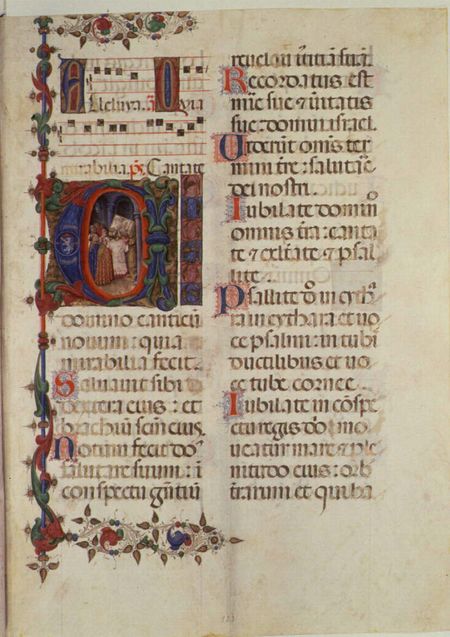 Alleluya. Quia
mirabilia. p̄s. Cantate
domino canticū
novum: quia
mirabilia fecit.
Salvavit sibi
dextera eius: et
brachiū scm̄ eius.
Notum fecit do⁹
salutare suum: ī
conspectu gentiū
revelavit iusticiā suā.
Recordatus est
mīe sue et ūitatis
sue: domui israel.
Viderūt om̄s ter
mini tr̄e: salutare
dei nostri.
Iubilate domino
omnis tr̄a: canta
te et exl̄tate et psal
lite.
Psallite dō in cytha
ra in cythara et vo
ce psalmi: in tubis
ductilibus et vo
ce tube cornee.
Iubilate in cōspe
ctu regis dōi: mo
veatur mare et ple
nitudo eius: orbis
trarum et qui ha